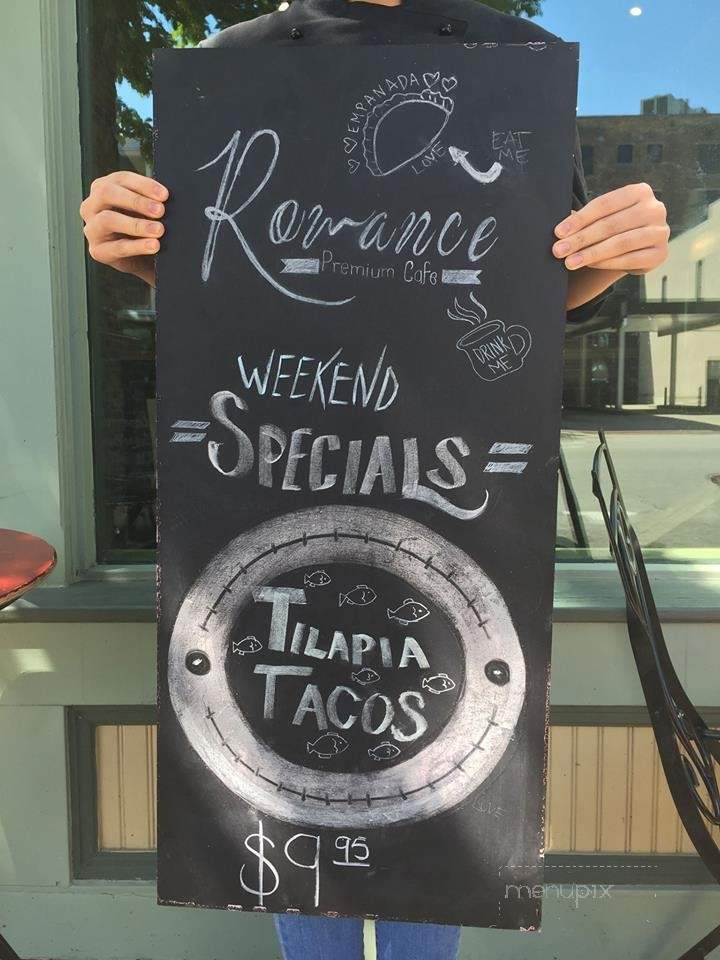 EMPANADA
LOVE
EAT
ME
Romance
Premium Cafe
DRINK
ME
WEEKEND
=SPECIALS=
TILAPIA
TACOS
LOVE
$9.95
menupix